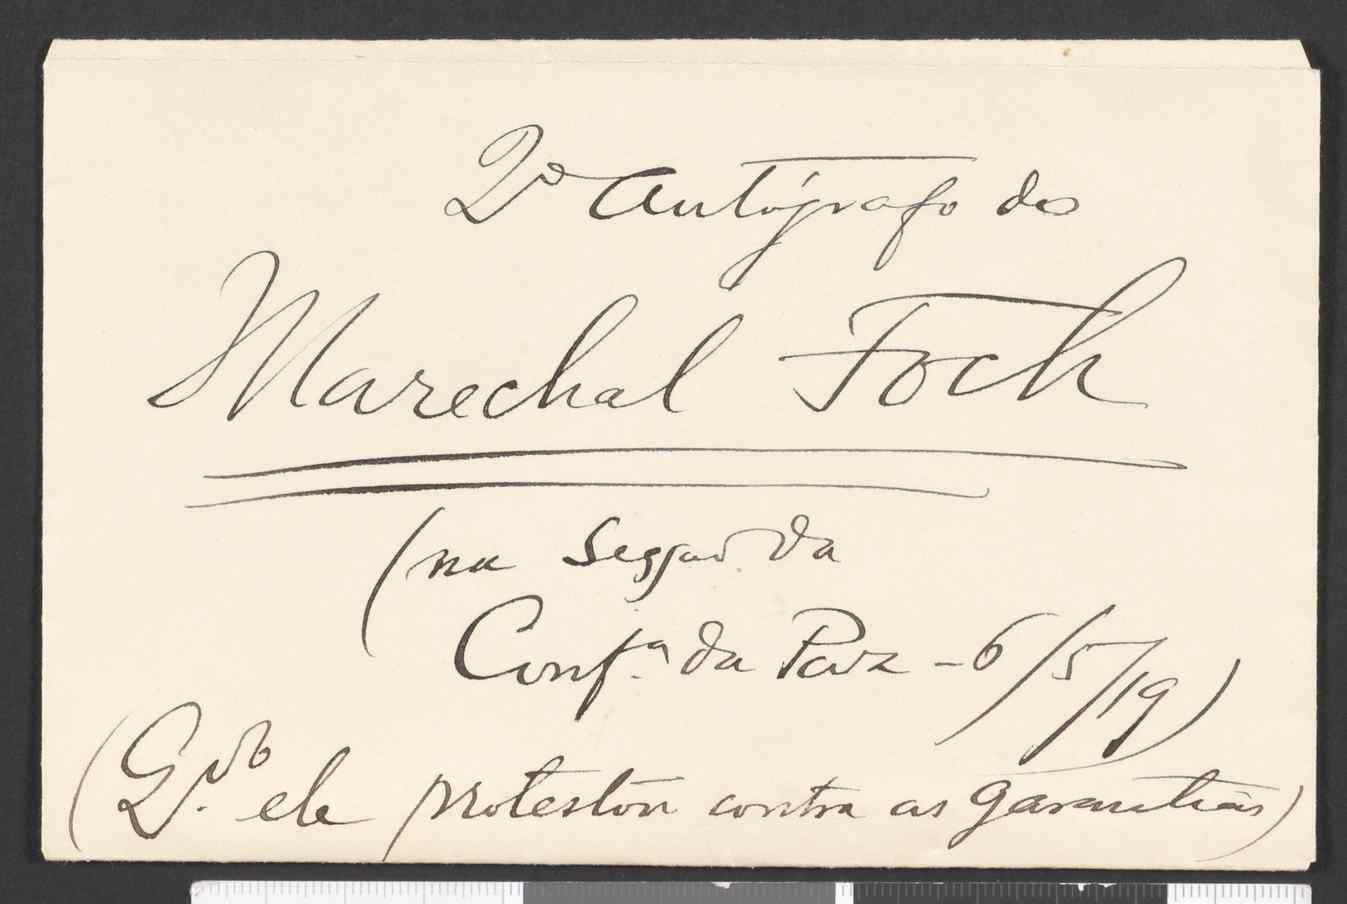 2º Autógrafo do
Marechal Foch
(na Sessão da
Confª da Paz - 6/5/19)
(Qdo ele protestou contra as garantias)